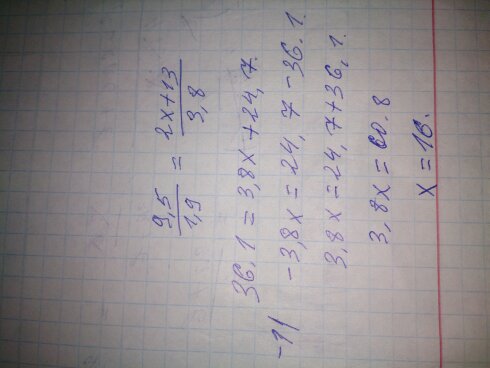 9,5/1,9 = 2x+13/3,8
36,1 = 3,8x+24,7.
-1| -3,8x = 24,7-36.1.
3,8x = 24,7+36,1.
3,8x = 60.8
x = 16.